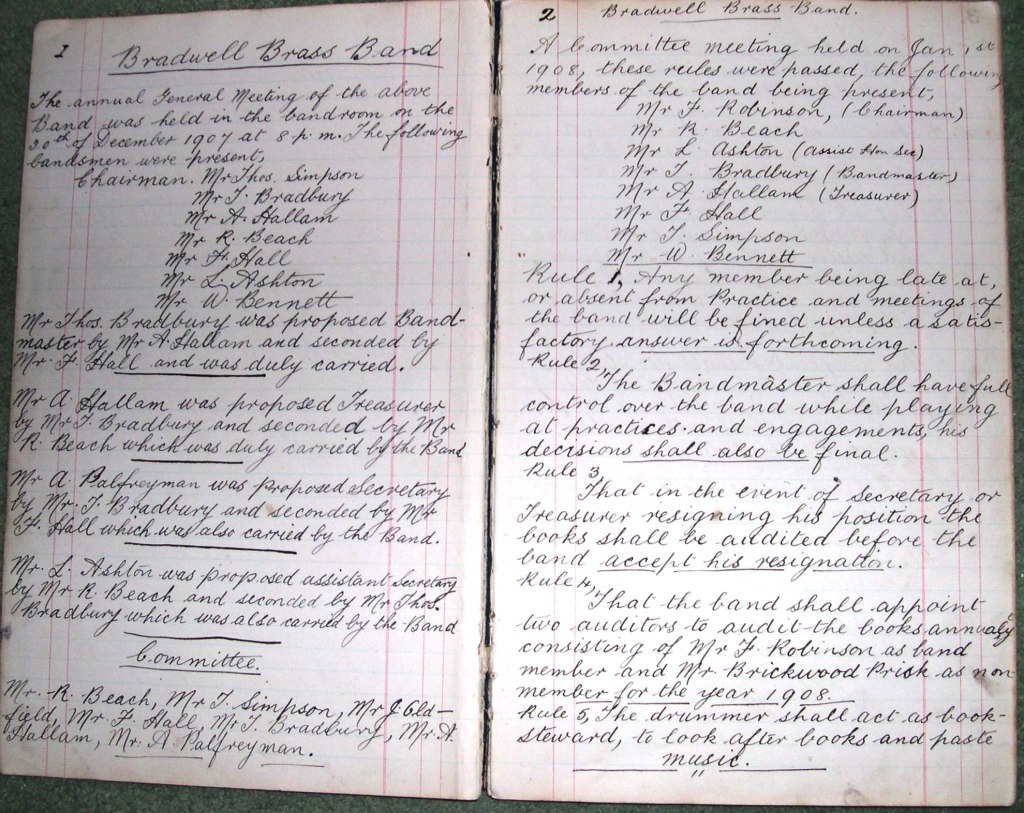 1
Bradwell Brass Band
The annual General Meeting of the above
Band was held in the bandroom on the
30th of December 1907 at 8 p.m. The following
bandsmen were present,
Chairman. Mr Thos. Simpson
Mr T. Bradbury
Mr A. Hallam
Mr R. Beach
Mr F. Hall
Mr L. Ashton
Mr W. Bennett
Mr Thos. Bradbury was proposed Band-
master by Mr A Hallam and seconded by
Mr. F. Hall and was duly carried.
Mr A. Hallam was proposed Treasurer
by Mr T. Bradbury and seconded by Mr
R. Beach which was duly carried by the Band
Mr A. Palfreyman was proposed Secretary
by Mr. T. Bradbury and seconded by Mr
F. Hall which was also carried by the Band.
Mr. L. Ashton was proposed assistant Secretary
by Mr R. Beach and seconded by Mr Thos.
Bradbury which was also carried by the Band
Committee.
Mr. R. Beach, Mr T. Simpson, Mr J Old-
field, Mr. F. Hall, Mr T. Bradbury, Mr. A.
Hallam, Mr. A Palfreyman.
2
Bradwell Brass Band.
A Committee meeting held on Jan 1st
1908, these rules were passed, the following
members of the band being present,
Mr F. Robinson, (Chairman)
Mr R. Beach
Mr L. Ashton (Assist Hon Sec)
Mr T. Bradbury (Bandmaster)
Mr A. Hallam (Treasurer)
Mr F. Hall
Mr T. Simpson
Mr W. Bennett
Rule 1, Any member being late at,
or absent from Practice and meetings of
the band will be fined unless a satis-
factory answer is forthcoming.
Rule 2,
The Bandmaster shall have full
control over the band while playing
at practices and engagements, his
decisions shall also be final.
Rule 3
That in the event of Secretary or
Treasurer resigning his position the
books shall be audited before the
band accept his resignation.
Rule 4,
That the band shall appoint
two auditors to audit the books annualy
consisting of Mr F. Robinson as band
member and Mr Brickwood Prisk as non-
member for the year 1908.
Rule 5, The drummer shall act as book-
steward, to look after books and paste
music.